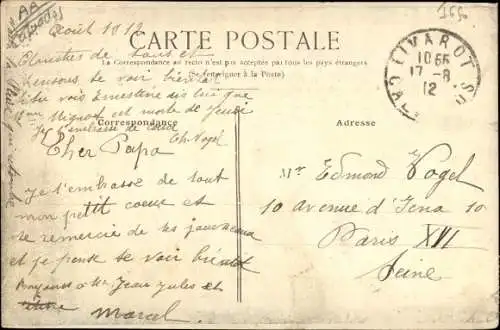 Août 1912
CARTE POSTALE
La Correspondance au recto n'est pas acceptée par tous les pays étrangers
(Se renseigner à la Poste)
LIVAROT
10 55
17 - 8
12
CALVADOS
de tous et
pensons se voir bientôt
si tu vois Ernestine dis lui que
Mignot est morte de Jeudi
Je t'embrasse de cœur
Ch. Vogel
Correspondance
Adresse
Cher Papa
Je t'embrasse de tout
mon petit coeur et
te remercie de tes journaux
et je pense te voir bientôt
Bonjours à Jean Jules et
Marcel
Mr Edmond Vogel
10 avenue d'Iena 10
Paris XVI
Seine